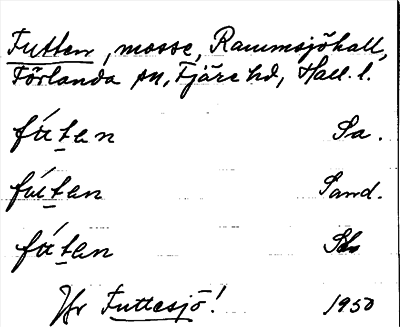 Futten, mosse, Rammsjökall,
Förlanda sn, Fjäre hd, Hall. l.
fútan Sa.
fútan Sand.
fútan
Jfr Futtesjö! 1950